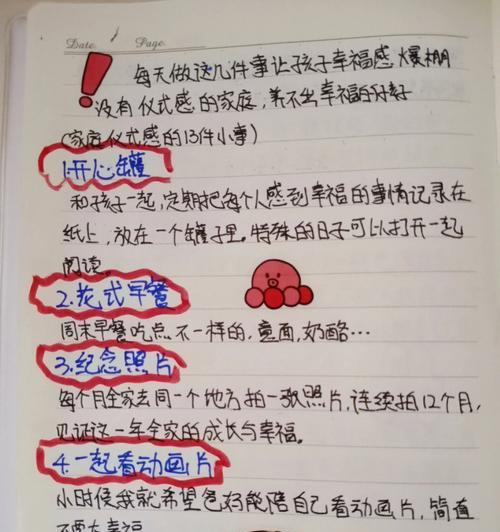 Date. Page.
! 每天做这几件事让孩子幸福感爆棚
没有仪式感的家庭,养不出幸福的好孩子
(家庭仪式感的13件小事)
1.开心罐
和孩子一起,定期把每个人感到幸福的事情记录在
纸上,放在一个罐子里。特殊的日子可以打开一起
阅读。
2.花式早餐
周末早餐吃点不一样的,意面,奶酪…
3.纪念照片
每个月全家去同一个地方拍一张照片,连续拍12个月,
见证这一年全家的成长与幸福。
4.一起看动画片
小时候我就希望爸妈能陪自己看动画片,简直
不要太幸福